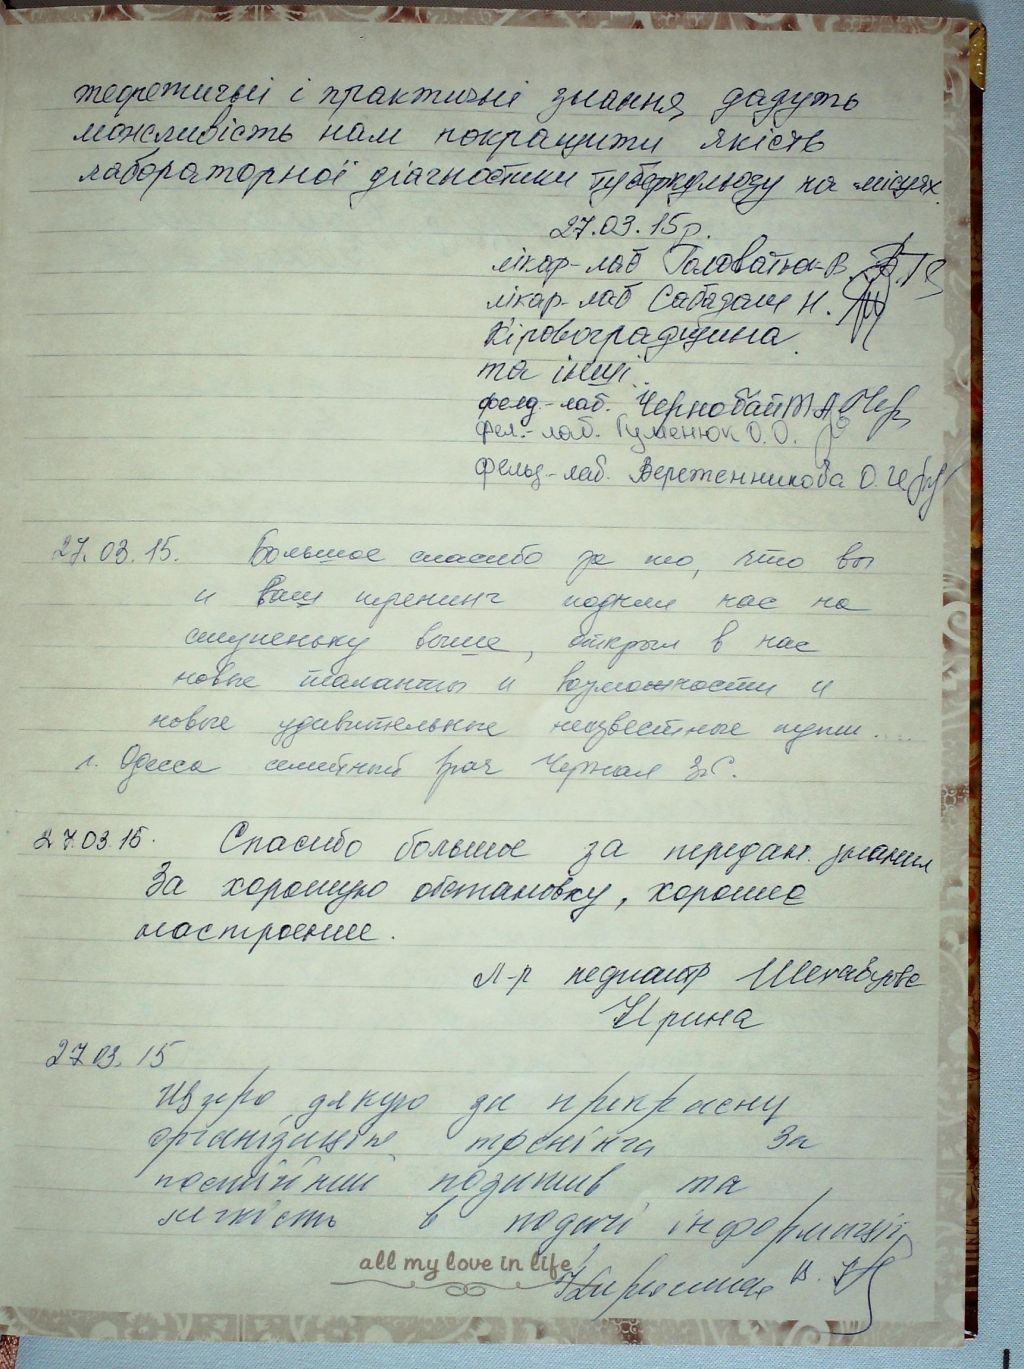 теоретичні і практичні знання, дадуть
можливість нам покращити якість
лабораторної діагностики туберкульозу на місцях.
27.03.15р.
лікар-лаб Головатюк В.
лікар-лаб Сабадаш Н.
Кіровоградщина
та інші..
фелд.-лаб. Чернобай Т А
фел.-лаб. Гуменюк О.О.
фельд-лаб. Вереженникова О.
27.03.15. Большое спасибо за то, что вы
и ваш тренинг подняли нас на
ступеньку выше, открыл в нас
новые таланты и возможности и
новые удивительные неизвестные пути....
г. Одесса семейный врач Черная
27.03.15. Спасибо большое за передан. знания
За хорошую обстановку, хорошее
настроение.
педиатр
Ирина
27.03.15
Щиро дякую за прекрасну
організацію тренінга За
постійний позитив та
легкість в подачі інформації
all my love in life